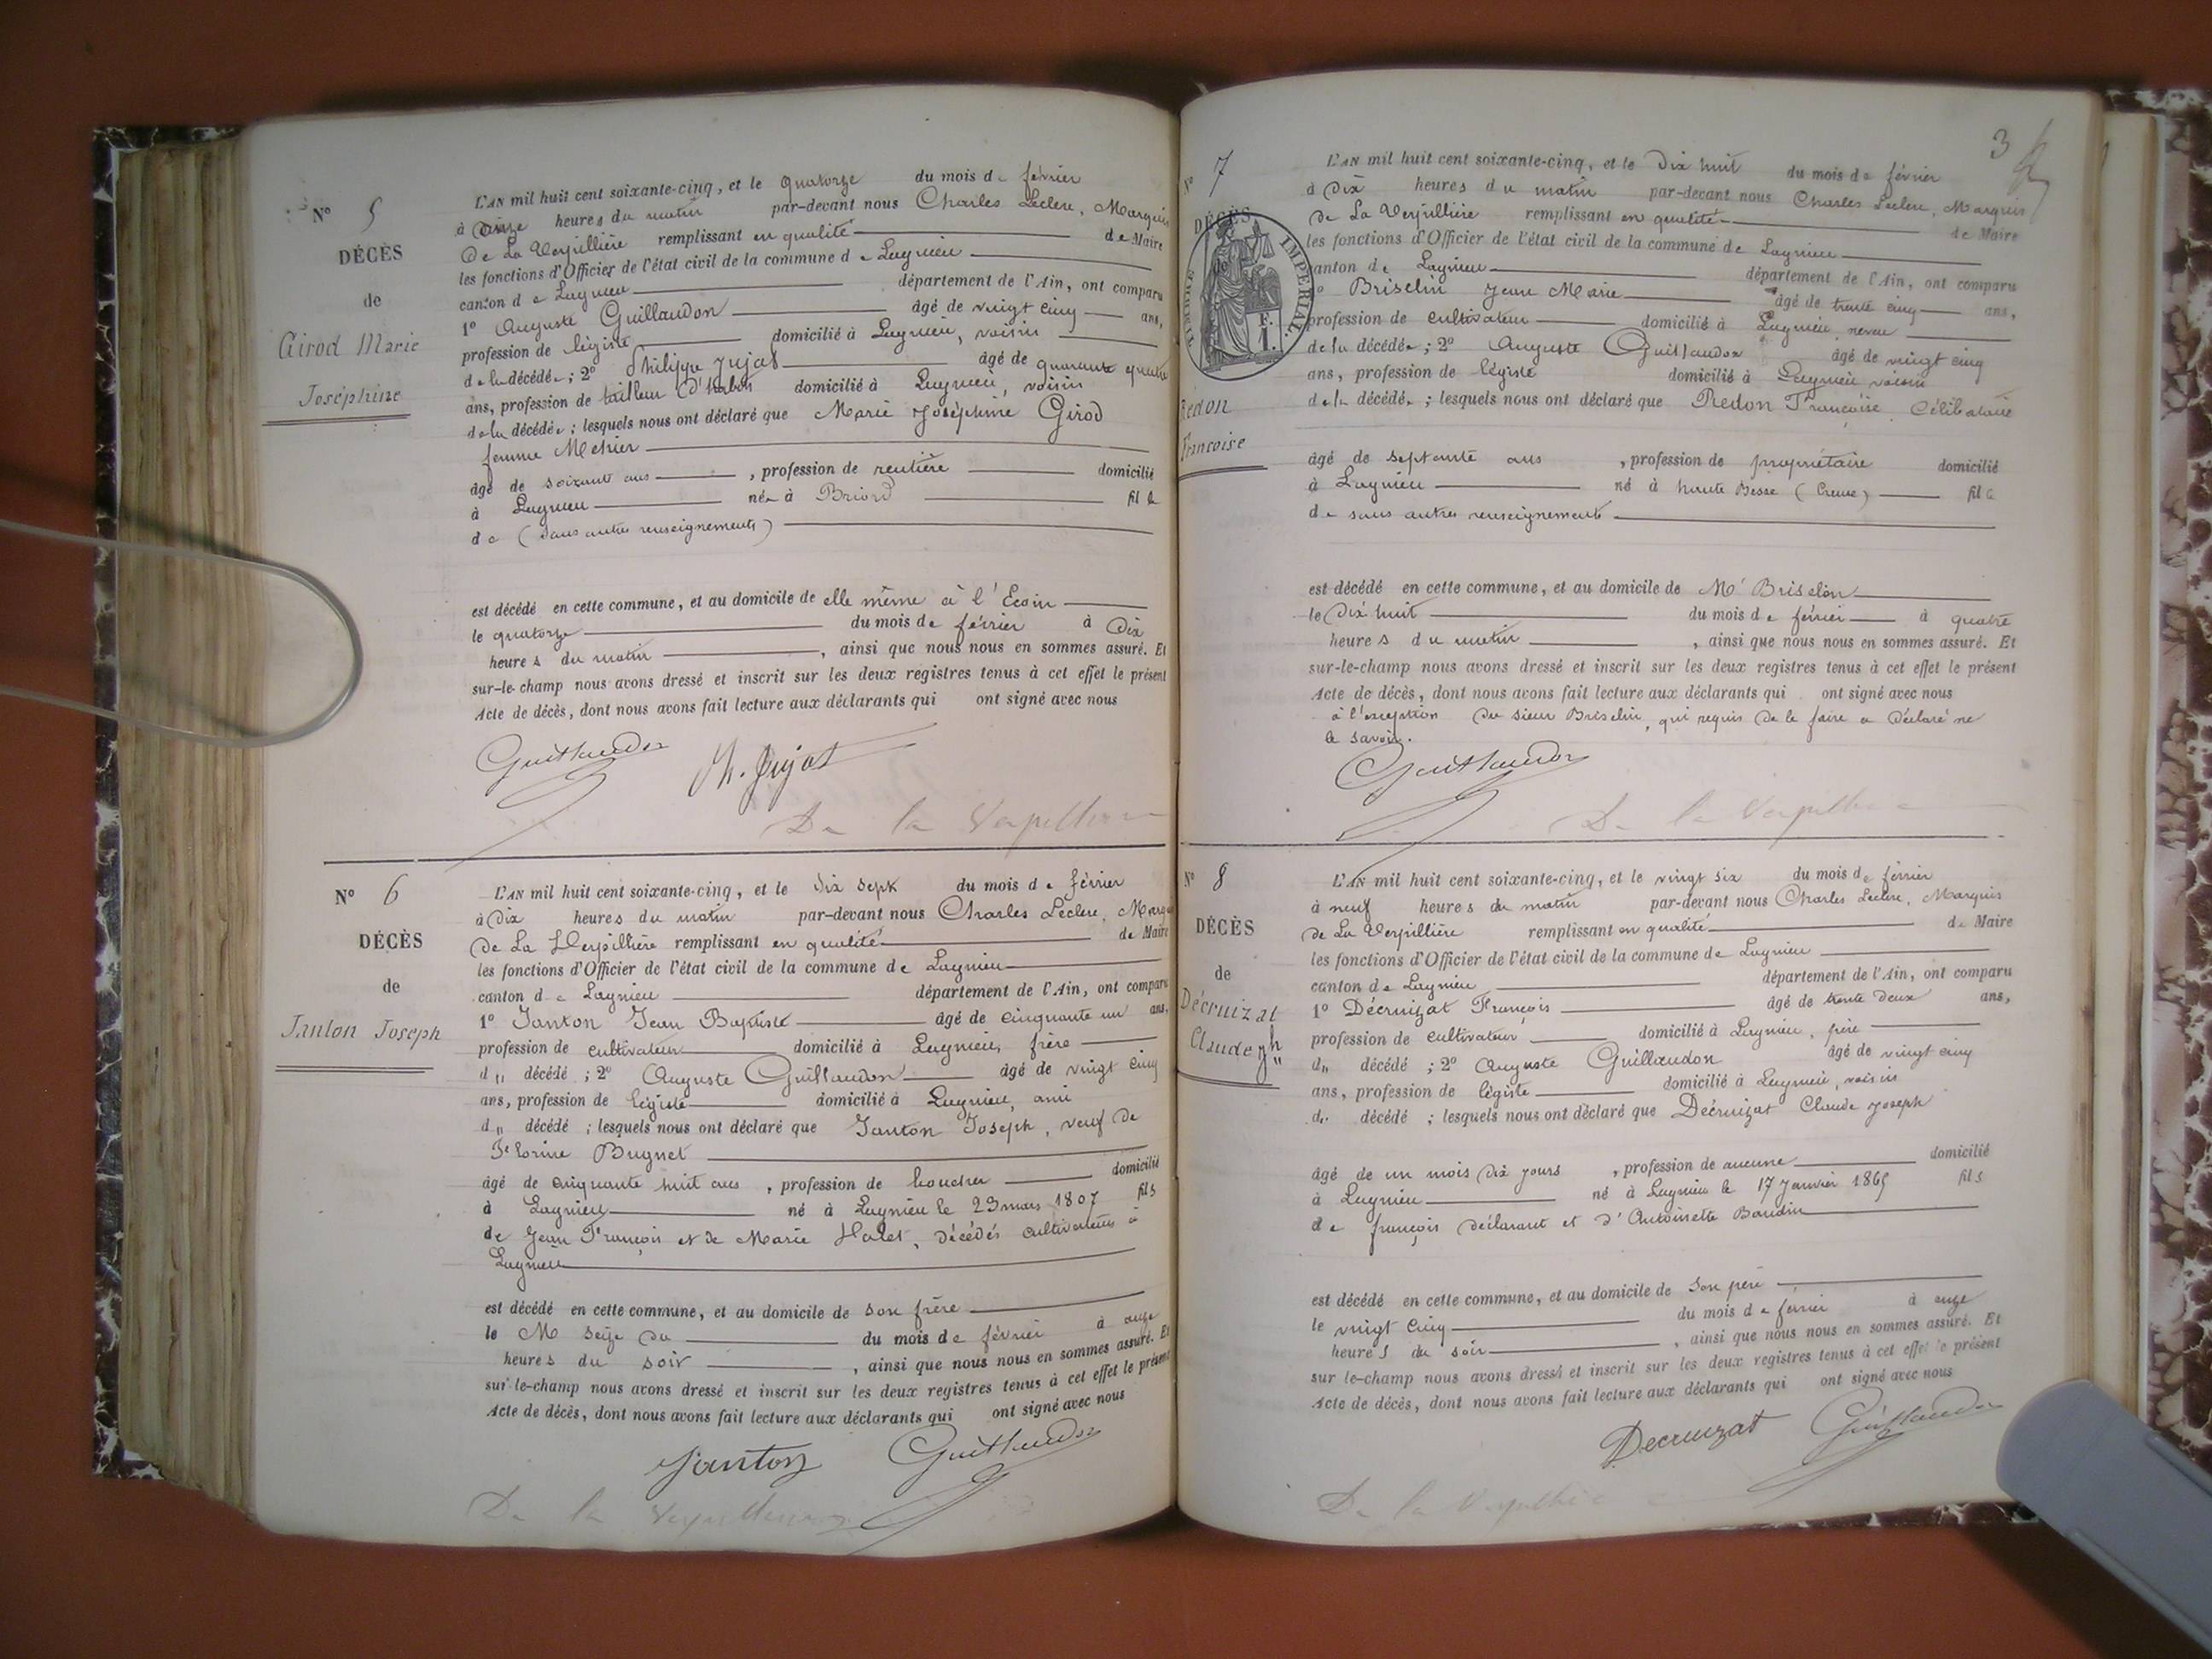 N° 5
DÉCÈS
de
Girod Marie
Joséphine
L'AN mil huit cent soixante-cinq, et le quatorze du mois de février
à onze heures du matin par-devant nous Charles Leclerc, Marquis
de La Verpillière remplissant en qualité de Maire
les fonctions d'Officier de l'état civil de la commune de Lagnieu
canton de Lagnieu département de l'Ain, ont comparu
1° Auguste Guillaudon âgé de vingt cinq ans,
profession de légiste domicilié à Lagnieu, voisin
de la décédée ; 2° Philippe Jujat âgé de quarante quatre
ans, profession de tailleur d'habits domicilié à Lagnieu, voisin
de la décédée ; lesquels nous ont déclaré que Marie Joséphine Girod
femme
âgé de soixante ans , profession de rentière domicilié
à Lagnieu née à Briord fille
de (sans autres renseignements)
est décédé en cette commune, et au domicile de elle même à l'
le quatorze du mois de février à dix
heures du matin , ainsi que nous nous en sommes assuré. Et
sur-le-champ nous avons dressé et inscrit sur les deux registres tenus à cet effet le présent
Acte de décès, dont nous avons fait lecture aux déclarants qui ont signé avec nous
Guillaudon Ph. Jujat
De la Verpillière
N° 6
DÉCÈS
de
Janton Joseph
L'AN mil huit cent soixante-cinq, et le dix sept du mois de février
à dix heures du matin par-devant nous Charles Leclerc, Marq
de La Verpillière remplissant en qualité de Maire
les fonctions d'Officier de l'état civil de la commune de Lagnieu
canton de Lagnieu département de l'Ain, ont comparu
1° Janton Jean Baptiste âgé de cinquante un ans,
profession de cultivateur domicilié à Lagnieu, frère
d" décédé ; 2° Auguste Guillaudon âgé de vingt cinq
ans, profession de légiste domicilié à Lagnieu, ami
d" décédé ; lesquels nous ont déclaré que Janton Joseph, veuf de
Bugnet
âgé de cinquante huit ans , profession de boucher domicilié
à Lagnieu né à Lagnieu le 23 mars 1807 fils
de Jean François et de Marie , décédés cultivateurs à
Lagnieu
est décédé en cette commune, et au domicile de son frère
le seize du du mois de février à onze
heures du soir , ainsi que nous nous en sommes assuré. Et
sur-le-champ nous avons dressé et inscrit sur les deux registres tenus à cet effet le présent
Acte de décès, dont nous avons fait lecture aux déclarants qui ont signé avec nous
Janton Guillaudon
De la Verpillière
3
N° 7
DÉCÈS
de
TIMBRE IMPERIAL.
F.
1.
Redon
Francoise
L'AN mil huit cent soixante-cinq, et le dix huit du mois de février
à dix heures du matin par-devant nous Charles Leclerc, Marquis
de La Verpillière remplissant en qualité de Maire
les fonctions d'Officier de l'état civil de la commune de Lagnieu
canton de Lagnieu département de l'Ain, ont comparu
1° Briselin Jean Marie âgé de trente cinq ans,
profession de cultivateur domicilié à Lagnieu, neveu
de la décédée ; 2° Auguste Guillaudon âgé de vingt cinq
ans, profession de légiste domicilié à Lagnieu voisin
de la décédée ; lesquels nous ont déclaré que Redon Françoise célibataire
âgé de septante ans , profession de propriétaire domicilié
à Lagnieu né à haute Besse (Creuse) fille
de sans autres renseignements
est décédé en cette commune, et au domicile de Mr Briselin
le dix huit du mois de février à quatre
heures du matin , ainsi que nous nous en sommes assuré. Et
sur-le-champ nous avons dressé et inscrit sur les deux registres tenus à cet effet le présent
Acte de décès, dont nous avons fait lecture aux déclarants qui ont signé avec nous
à l'exception du sieur Briselin, qui requis de le faire a déclaré ne
le savoir.
Guillaudon
De la Verpillière
N° 8
DÉCÈS
de
Décruizat
Claude Jh
L'AN mil huit cent soixante-cinq, et le vingt six du mois de février
à neuf heures du matin par-devant nous Charles Leclerc, Marquis
de La Verpillière remplissant en qualité de Maire
les fonctions d'Officier de l'état civil de la commune de Lagnieu
canton de Lagnieu département de l'Ain, ont comparu
1° Décruizat François âgé de trente deux ans,
profession de cultivateur domicilié à Lagnieu, père
d" décédé ; 2° Auguste Guillaudon âgé de vingt cinq
ans, profession de légiste domicilié à Lagnieu, voisin
d" décédé ; lesquels nous ont déclaré que Décruizat Claude Joseph
âgé de un mois dix jours , profession de aucune domicilié
à Lagnieu né à Lagnieu le 17 Janvier 1865 fils
de françois déclarant et d'Antoinette Baudin
est décédé en cette commune, et au domicile de son père
le vingt cinq du mois de février à onze
heures du soir , ainsi que nous nous en sommes assuré. Et
sur le-champ nous avons dressé et inscrit sur les deux registres tenus à cet effet le présent
Acte de décès, dont nous avons fait lecture aux déclarants qui ont signé avec nous
Decruizat Guillaudon
De la Verpillière